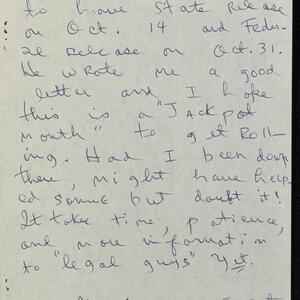 to have State Release
on Oct. 14 and Feder-
al Release on Oct. 31.
He wrote me a good
letter and I hope
this is a "Jackpot
month" to get Roll-
ing. Had I been down
there, might have help-
ed some but doubt it!
It takes time, patience,
and more information
to "legal guys" yet.